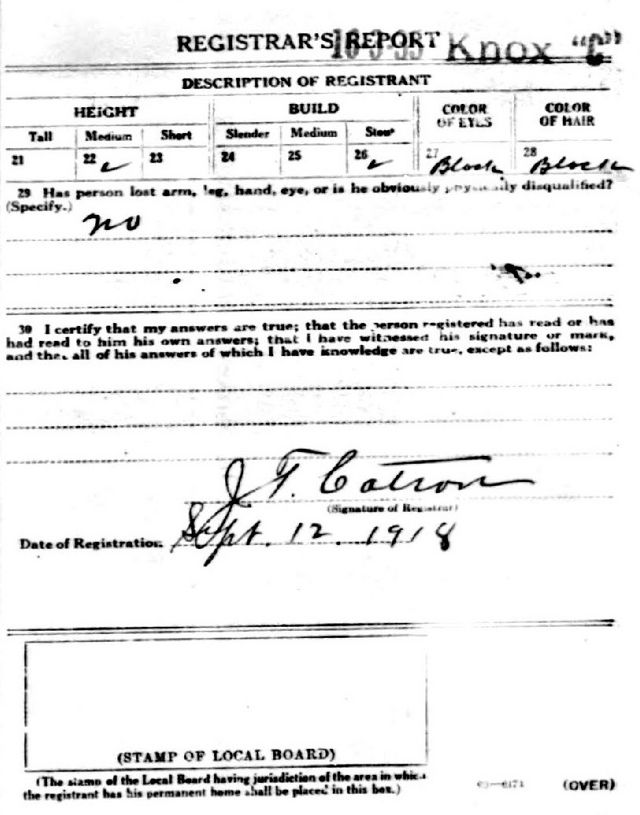 REGISTRAR'S REPORT Knox "C"
DESCRIPTION OF REGISTRANT
HEIGHT BUILD COLOR OF EYES COLOR OF HAIR
Tall Medium Short Slender Medium Stout
21 22 ✓ 23 24 25 26 ✓ 27 Black 28 Black
29 Has person lost arm, leg, hand, eye, or is he obviously physically disqualified?
(Specify.)
no
30 I certify that my answers are true; that the person registered has read or has
had read to him his own answers; that I have witnessed his signature or mark,
and that all of his answers of which I have knowledge are true, except as follows:
J. T. Catron
(Signature of Registrar)
Date of Registration Sept. 12. 1918
(STAMP OF LOCAL BOARD)
(The stamp of the Local Board having jurisdiction of the area in which
the registrant has his permanent home shall be placed in this box.)
(OVER)